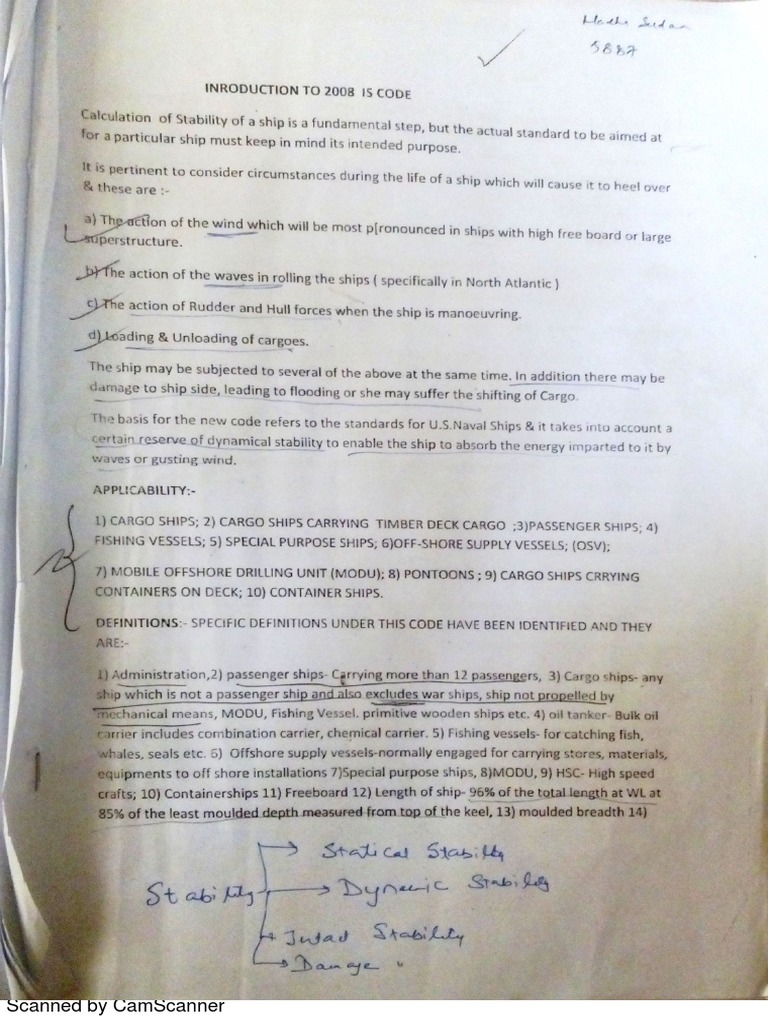 Madhu Sudan
5887
INRODUCTION TO 2008 IS CODE
Calculation of Stability of a ship is a fundamental step, but the actual standard to be aimed at
for a particular ship must keep in mind its intended purpose.
It is pertinent to consider circumstances during the life of a ship which will cause it to heel over
& these are :-
a) The action of the wind which will be most p[ronounced in ships with high free board or large
superstructure.
b) The action of the waves in rolling the ships ( specifically in North Atlantic )
c) The action of Rudder and Hull forces when the ship is manoeuvring.
d) Loading & Unloading of cargoes.
The ship may be subjected to several of the above at the same time. In addition there may be
damage to ship side, leading to flooding or she may suffer the shifting of Cargo.
The basis for the new code refers to the standards for U.S.Naval Ships & it takes into account a
certain reserve of dynamical stability to enable the ship to absorb the energy imparted to it by
waves or gusting wind.
APPLICABILITY:-
1) CARGO SHIPS; 2) CARGO SHIPS CARRYING TIMBER DECK CARGO ;3)PASSENGER SHIPS; 4)
FISHING VESSELS; 5) SPECIAL PURPOSE SHIPS; 6)OFF-SHORE SUPPLY VESSELS; (OSV);
7) MOBILE OFFSHORE DRILLING UNIT (MODU); 8) PONTOONS ; 9) CARGO SHIPS CRRYING
CONTAINERS ON DECK; 10) CONTAINER SHIPS.
DEFINITIONS:- SPECIFIC DEFINITIONS UNDER THIS CODE HAVE BEEN IDENTIFIED AND THEY
ARE:-
1) Administration,2) passenger ships- Carrying more than 12 passengers, 3) Cargo ships- any
ship which is not a passenger ship and also excludes war ships, ship not propelled by
mechanical means, MODU, Fishing Vessel. primitive wooden ships etc. 4) oil tanker- Bulk oil
carrier includes combination carrier, chemical carrier. 5) Fishing vessels- for catching fish,
whales, seals etc. 6) Offshore supply vessels-normally engaged for carrying stores, materials,
equipments to off shore installations 7)Special purpose ships, 8)MODU, 9) HSC- High speed
crafts; 10) Containerships 11) Freeboard 12) Length of ship- 96% of the total length at WL at
85% of the least moulded depth measured from top of the keel, 13) moulded breadth 14)
Statical Stability
Stability
Dynamic Stability
Intact Stability
Damage "
Scanned by CamScanner